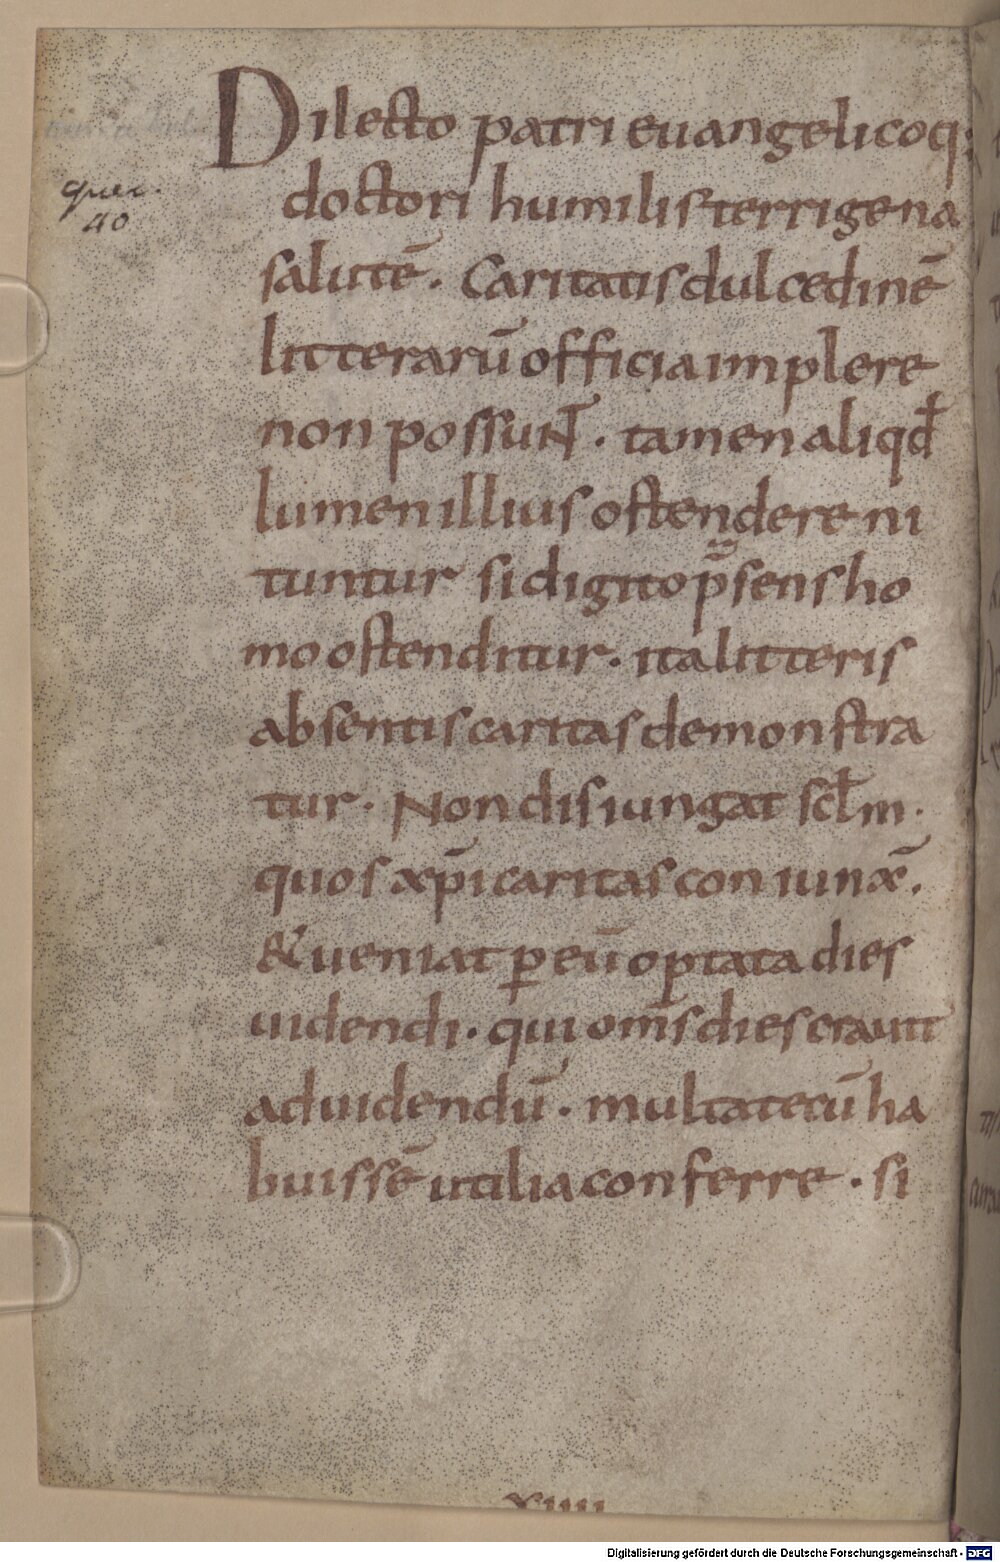 quer.
40
Dilecto patri euangelicoq;
doctori humilis terrigena
salutē. Caritatis dulcedinē
litterarū officia implere
non possunt. tamen aliqđ
lumen illius ostendere ni
tuntur si digito p̄sens ho
mo ostenditur. ita litteris
absentis caritas demonstra
tur. Non disiungat scl̄m.
quos xp̄i caritas coniunǣ.
& ueniat ꝑ eū optata dies
uidendi. qui om̄s dies creauit
ad uidendū. multa tecū ha
buissē utilia conferre. si
xiiii
Digitalisierung gefördert durch die Deutsche Forschungsgemeinschaft - DFG